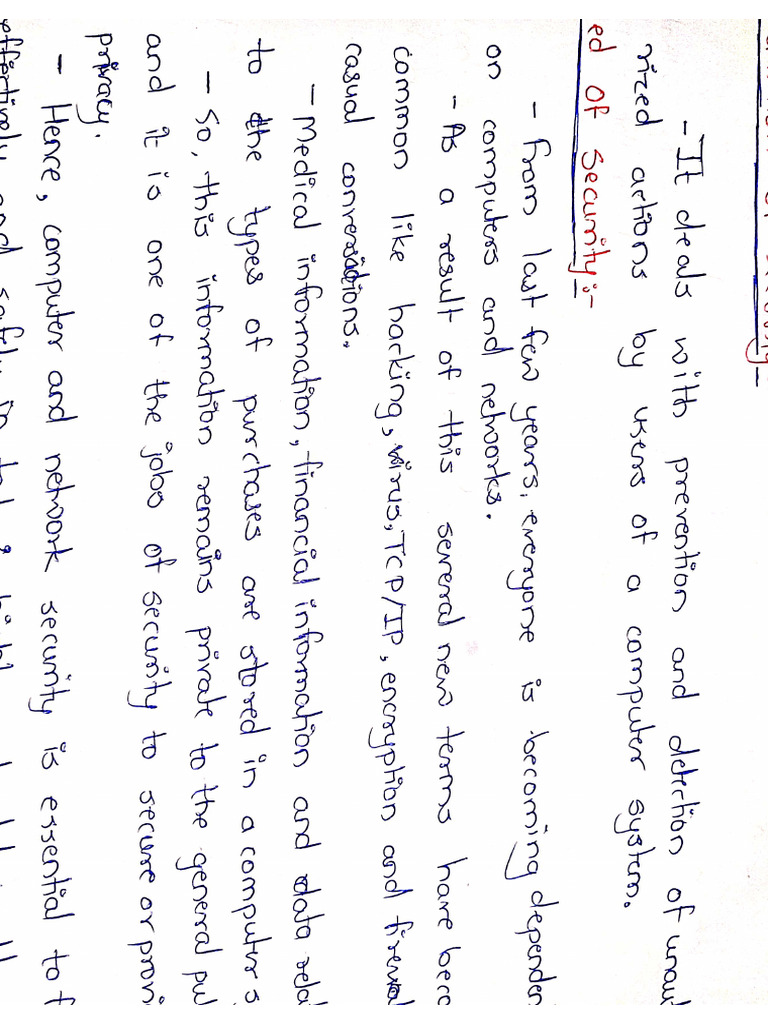 - It deals with prevention and detection of unau
rized actions by users of a computer system.
ed of Security:-
- From last few years, everyone is becoming depender
on computers and networks.
- As a result of this several new terms have becc
common like hacking, virus, TCP/IP, encryption and firewal
casual conversations.
- Medical information, financial information and data rela
to the types of purchases are stored in a computer s
- So, this information remains private to the general pul
and it is one of the jobs of security to secure or provi
privacy.
- Hence, computer and network security is essential to f
effectively and safely in